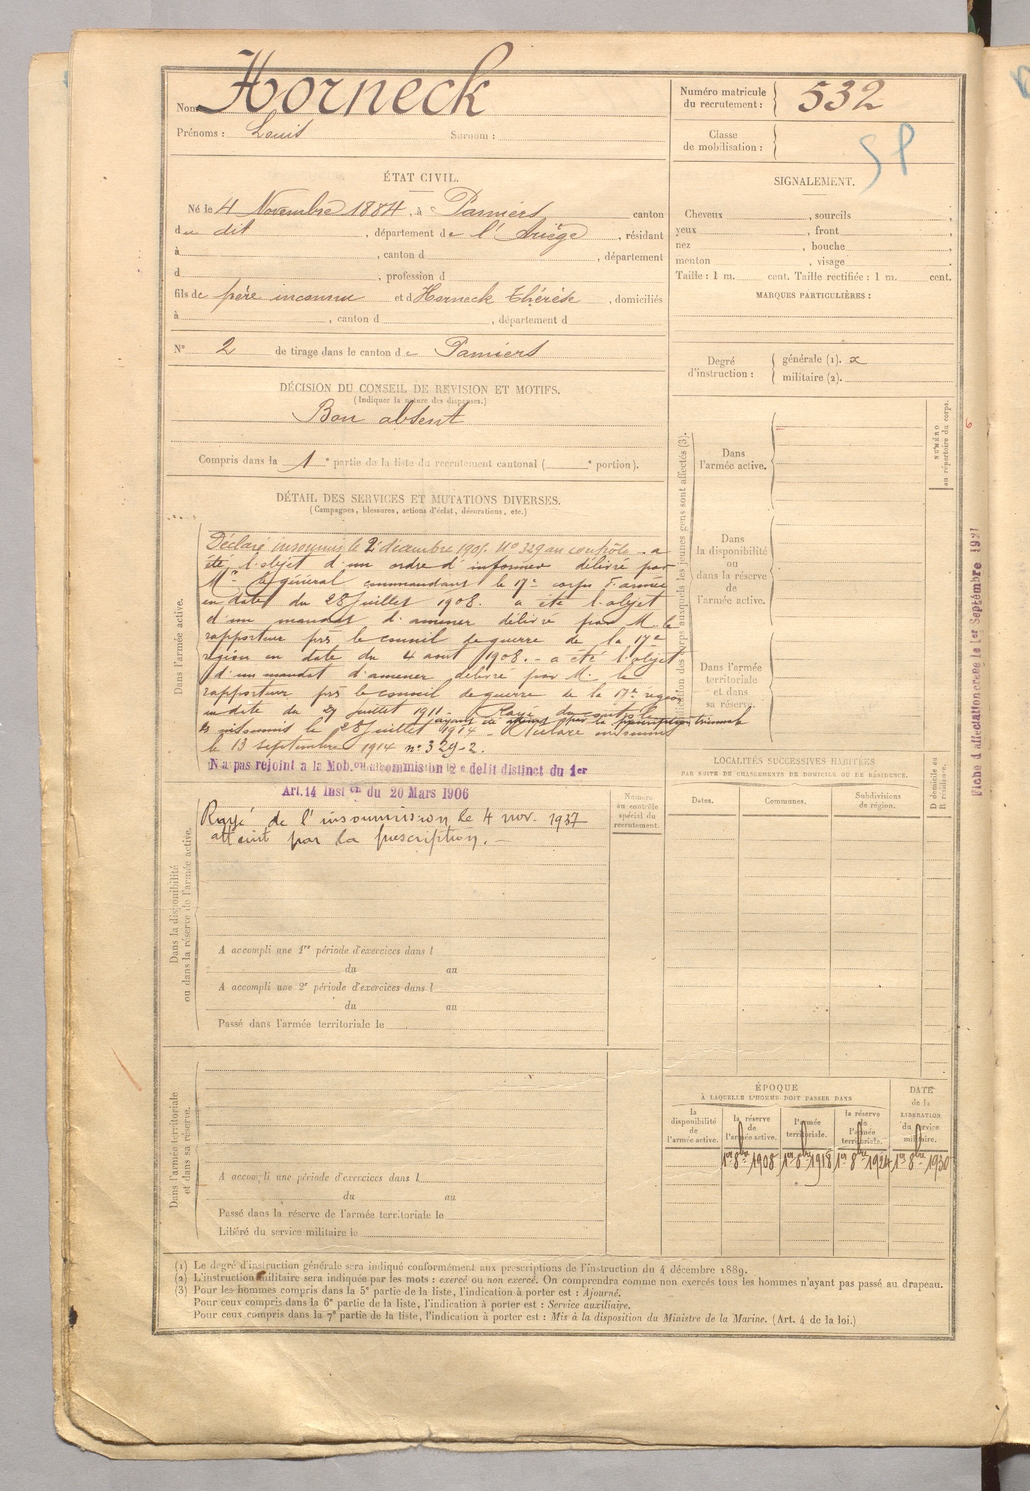 Nom Horneck
Prénoms : Louis Surnom :
Numéro matricule du recrutement : 532
Classe de mobilisation :
SP
ÉTAT CIVIL.
Né le 4 Novembre 1884, à Pamiers canton
du dit, département de l'Ariège, résidant
à , canton d , département
d , profession d
fils de père inconnu et d Horneck Thérèse, domiciliés
à , canton d , département d
N° 2 de tirage dans le canton de Pamiers
SIGNALEMENT.
Cheveux , sourcils ,
yeux , front ,
nez , bouche ,
menton , visage .
Taille : 1 m. cent. Taille rectifiée : 1 m. cent.
MARQUES PARTICULIÈRES :
Degré d'instruction : générale (1). x
militaire (2).
DÉCISION DU CONSEIL DE REVISION ET MOTIFS.
(Indiquer la nature des dispenses.)
Bon absent
Compris dans la 1e partie de la liste du recrutement cantonal ( e portion).
DÉTAIL DES SERVICES ET MUTATIONS DIVERSES.
(Campagnes, blessures, actions d'éclat, décorations, etc.)
Dans l'armée active.
Déclaré insoumis le 2 décembre 1905 N° 329 au contrôle. a
été l'objet d'un ordre d'informer délivré par
Mr le général commandant le 17e corps d'armée
en date du 28 juillet 1908. a été l'objet
d'un mandat d'amener délivré par M. le
rapporteur près le conseil de guerre de la 17e
région en date du 4 aout 1908. - a été l'objet
d'un mandat d'amener délivré par M. le
rapporteur près le conseil de guerre de la 17e région
en date du 27 juillet 1911 - Rayé du contrôle
des insoumis le 28 juillet 1914 - Déclaré insoumis
le 13 septembre 1914 n° 329-2.
N'a pas rejoint a la Mob. ou insoumission 2e délit distinct du 1er
Art. 14 Inst on du 20 Mars 1906
Dans la disponibilité ou dans la réserve de l'armée active.
Rayé de l'insoumission le 4 nov. 1937
atteint par la prescription. -
A accompli une 1re période d'exercices dans l
du au
A accompli une 2e période d'exercices dans l
du au
Passé dans l'armée territoriale le
Dans l'armée territoriale et dans sa réserve.
A accompli une période d'exercices dans l
du au
Passé dans la réserve de l'armée territoriale le
Libéré du service militaire le
Numéro au contrôle spécial du recrutement.
corps auxquels les jeunes gens sont affectés (3).
Dans l'armée active.
Dans la disponibilité ou dans la réserve de l'armée active.
Dans l'armée territoriale et dans sa réserve.
NUMÉRO au répertoire du corps.
6
Fiche d'affectation créée le 1er Septembre 1921
LOCALITÉS SUCCESSIVES HABITÉES
PAR SUITE DE CHANGEMENTS DE DOMICILE OU DE RÉSIDENCE.
Dates. Communes. Subdivisions de région. D domicile ou R résidence.
ÉPOQUE
À LAQUELLE L'HOMME DOIT PASSER DANS
la disponibilité de l'armée active.
la réserve de l'armée active.
l'armée territoriale.
la réserve de l'armée territoriale.
DATE de la LIBÉRATION du service militaire.
1er 8bre 1908 1er 8bre 1918 1er 8bre 1924 1er 8bre 1930
(1) Le degré d'instruction générale sera indiqué conformément aux prescriptions de l'instruction du 4 décembre 1889.
(2) L'instruction militaire sera indiquée par les mots : exercé ou non exercé. On comprendra comme non exercés tous les hommes n'ayant pas passé au drapeau.
(3) Pour les hommes compris dans la 5e partie de la liste, l'indication à porter est : Ajourné.
Pour ceux compris dans la 6e partie de la liste, l'indication à porter est : Service auxiliaire.
Pour ceux compris dans la 7e partie de la liste, l'indication à porter est : Mis à la disposition du Ministre de la Marine. (Art. 4 de la loi.)